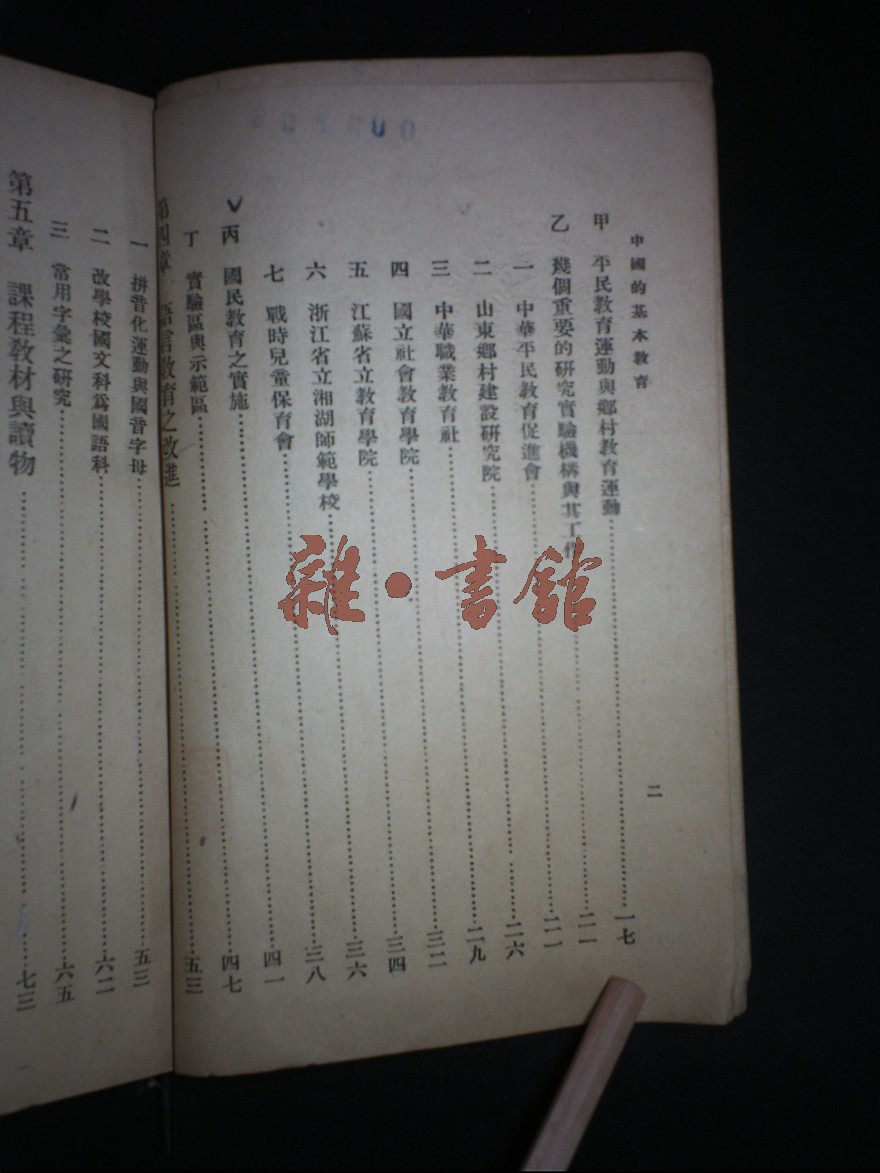 中國的基本教育 二
甲 平民教育運動與鄉村教育運動……一七
乙 幾個重要的研究實驗機構與其工作……二一
一 中華平民教育促進會……二一
二 山東鄉村建設研究院……二六
三 中華職業教育社……二九
四 國立社會教育學院……三二
五 江蘇省立教育學院……三四
六 浙江省立湘湖師範學校……三六
七 戰時兒童保育會……三八
丙 國民教育之實施……四一
丁 實驗區與示範區……四七
第四章 語言教育之改進……五三
一 拼音化運動與國音字母……五三
二 改學校國文科爲國語科……六二
三 常用字彙之研究……六五
第五章 課程教材與讀物……七三
雜·書館